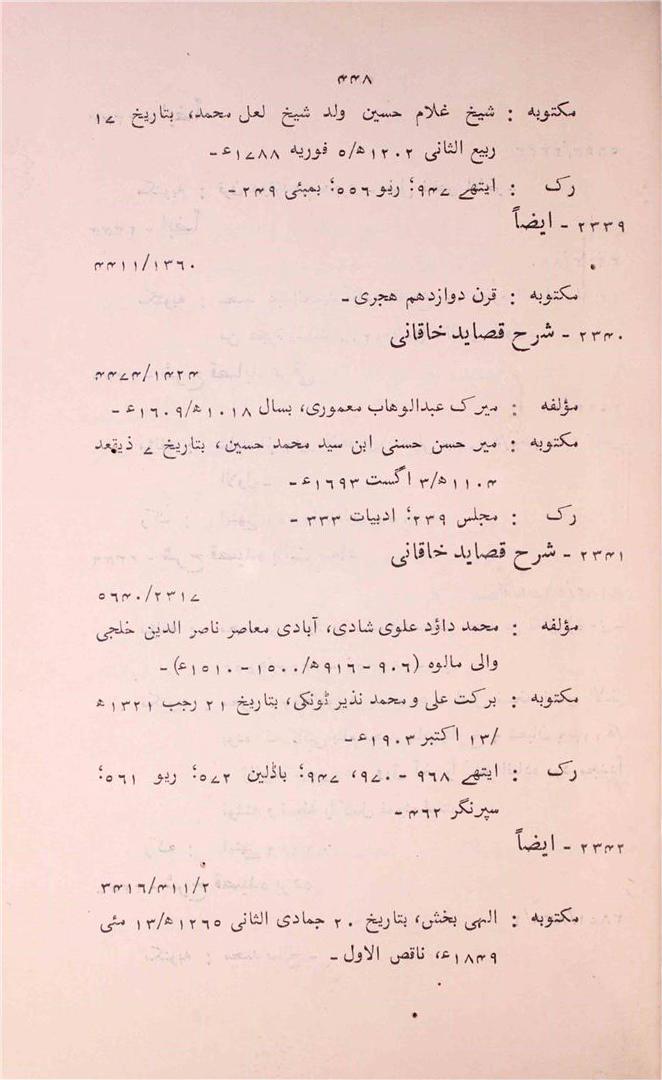 ۴۴۸
مکتوبه : شیخ غلام حسین ولد شیخ لعل محمد، بتاریخ ۱۷
ربیع الثانی ۱۲۰۲ھ/۵ فوریه ۱۷۸۸ع-
رک : ایتھے ۹۴۷؛ ریو ۵۵۶؛ بمبئی ۲۴۹-
۲۳۳۹ - ایضاً
۴۴۱۱/۱۳۶۰
مکتوبه : قرن دوازدهم هجری-
۲۳۴۰ - شرح قصاید خاقانی
۴۴۷۴/۱۴۲۴
مؤلفه : میرک عبدالوهاب معموری، بسال ۱۰۱۸ھ/۱۶۰۹ع-
مکتوبه : میر حسن حسنی ابن سید محمد حسین، بتاریخ ۷ ذیقعد
۱۱۰۴ھ/۳ اگست ۱۶۹۳ع-
رک : مجلس ۲۳۹؛ ادبیات ۳۳۳-
۲۳۴۱ - شرح قصاید خاقانی
۵۶۴۰/۲۳۱۷
مؤلفه : محمد داؤد علوی شادی، آبادی معاصر ناصر الدین خلجی
والی مالوه (۹۰۶ - ۹۱۶ھ/۱۵۰۰-۱۵۱۰ع)-
مکتوبه : برکت علی و محمد نذیر ٹونکی، بتاریخ ۲۱ رجب ۱۳۲۱ھ
/۱۳ اکتبر ۱۹۰۳ع-
رک : ایتھے ۹۶۸ - ۹۷۰، ۹۴۷؛ باڈلین ۵۷۲؛ ریو ۵۶۱؛
سپرنگر ۴۶۲-
۲۳۴۲ - ایضاً
۳۴۱۶/۴۱۱/۲
مکتوبه : الہی بخش، بتاریخ ۲۰ جمادی الثانی ۱۲۶۵ھ/۱۳ مئی
۱۸۴۹ع، ناقص الاول-